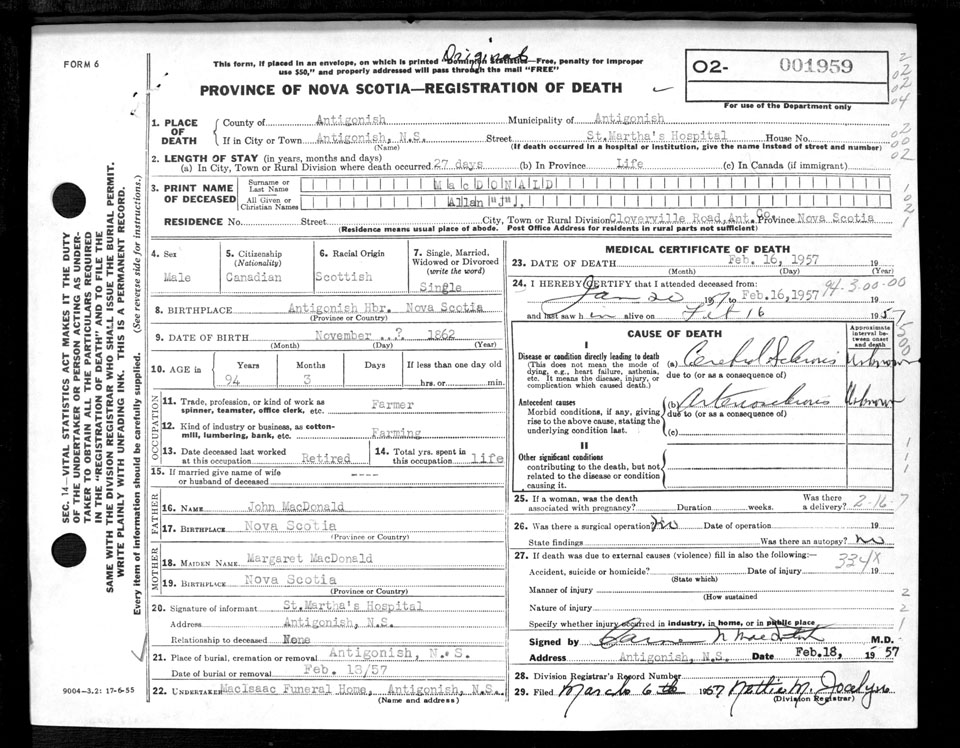 FORM 6
Original
This form, if placed in an envelope, on which is printed "Dominion Statistics—Free, penalty for improper
use $50," and properly addressed will pass through the mail "FREE"
PROVINCE OF NOVA SCOTIA—REGISTRATION OF DEATH
02- 001959
For use of the Department only
1. PLACE OF DEATH County of Antigonish Municipality of Antigonish
If in City or Town Antigonish, N.S. Street St.Martha's Hospital House No.
(Name) (If death occurred in a hospital or institution, give the name instead of street and number)
2. LENGTH OF STAY (in years, months and days)
(a) In City, Town or Rural Division where death occurred 27 days (b) In Province Life (c) In Canada (if immigrant)
3. PRINT NAME OF DECEASED Surname or Last Name MacDONALD
All Given or Christian Names Allan "J".
RESIDENCE No. Street City, Town or Rural Division Cloverville Road, Ant. Co. Province Nova Scotia
(Residence means usual place of abode. Post Office Address for residents in rural parts not sufficient)
4. Sex
Male
5. Citizenship
(Nationality)
Canadian
6. Racial Origin
Scottish
7. Single, Married,
Widowed or Divorced
(write the word)
Single
8. BIRTHPLACE Antigonish Hbr. Nova Scotia
(Province or Country)
9. DATE OF BIRTH November ..? 1862
(Month) (Day) (Year)
10. AGE in Years Months Days If less than one day old
94 3 hrs. or min.
OCCUPATION
11. Trade, profession, or kind of work as
spinner, teamster, office clerk, etc. Farmer
12. Kind of industry or business, as cotton-
mill, lumbering, bank, etc. Farming
13. Date deceased last worked
at this occupation Retired
14. Total yrs. spent in
this occupation life
15. If married give name of wife
or husband of deceased ----
FATHER
16. NAME John MacDonald
17. BIRTHPLACE Nova Scotia
(Province or Country)
MOTHER
18. MAIDEN NAME Margaret MacDonald
19. BIRTHPLACE Nova Scotia
(Province or Country)
20. Signature of informant St.Martha's Hospital
Address Antigonish, N.S.
Relationship to deceased None
21. Place of burial, cremation or removal Antigonish, N.S.
Date of burial or removal Feb. 18/57
22. UNDERTAKER MacIsaac Funeral Home, Antigonish, N.S.
(Name and address)
MEDICAL CERTIFICATE OF DEATH
23. DATE OF DEATH Feb. 16, 1957 19
(Month) (Day) (Year)
24. I HEREBY CERTIFY that I attended deceased from: 94-3-00-00
Jan 20 1957 to Feb.16,1957
and last saw h im alive on Feb 16 1957
CAUSE OF DEATH
Approximate interval between onset and death
I
Disease or condition directly leading to death
(This does not mean the mode of
dying, e.g., heart failure, asthenia,
etc. It means the disease, injury, or
complication which caused death.)
(a) Cerebral Sclerosis Unknown
due to (or as a consequence of)
Antecedent causes
Morbid conditions, if any, giving
rise to the above cause, stating the
underlying condition last.
(b) Arteriosclerosis Unknown
due to (or as a consequence of)
(c)
II
Other significant conditions
contributing to the death, but not
related to the disease or condition
causing it.
25. If a woman, was the death
associated with pregnancy? Duration weeks. Was there
a delivery? 2-16-7
26. Was there a surgical operation? No Date of operation 19
State findings Was there an autopsy? no
27. If death was due to external causes (violence) fill in also the following:— 334X
Accident, suicide or homicide? Date of injury 19
(State which)
Manner of injury
(How sustained
Nature of injury
Specify whether injury occurred in industry, in home, or in public place
Signed by M.D.
Address Antigonish, N.S. Date Feb.18, 1957
28. Division Registrar's Record Number
29. Filed March 6th 1957 Nettie M. Jocelyn
(Division Registrar)
SEC. 14—VITAL STATISTICS ACT MAKES IT THE DUTY
OF THE UNDERTAKER OR PERSON ACTING AS UNDER-
TAKER TO OBTAIN ALL THE PARTICULARS REQUIRED
IN THE "REGISTRATION OF DEATH" AND TO FILE THE
SAME WITH THE DIVISION REGISTRAR WHO SHALL ISSUE THE BURIAL PERMIT.
WRITE PLAINLY WITH UNFADING INK. THIS IS A PERMANENT RECORD.
Every item of information should be carefully supplied. (See reverse side for instructions.)
9004-3.21: 17-6-55